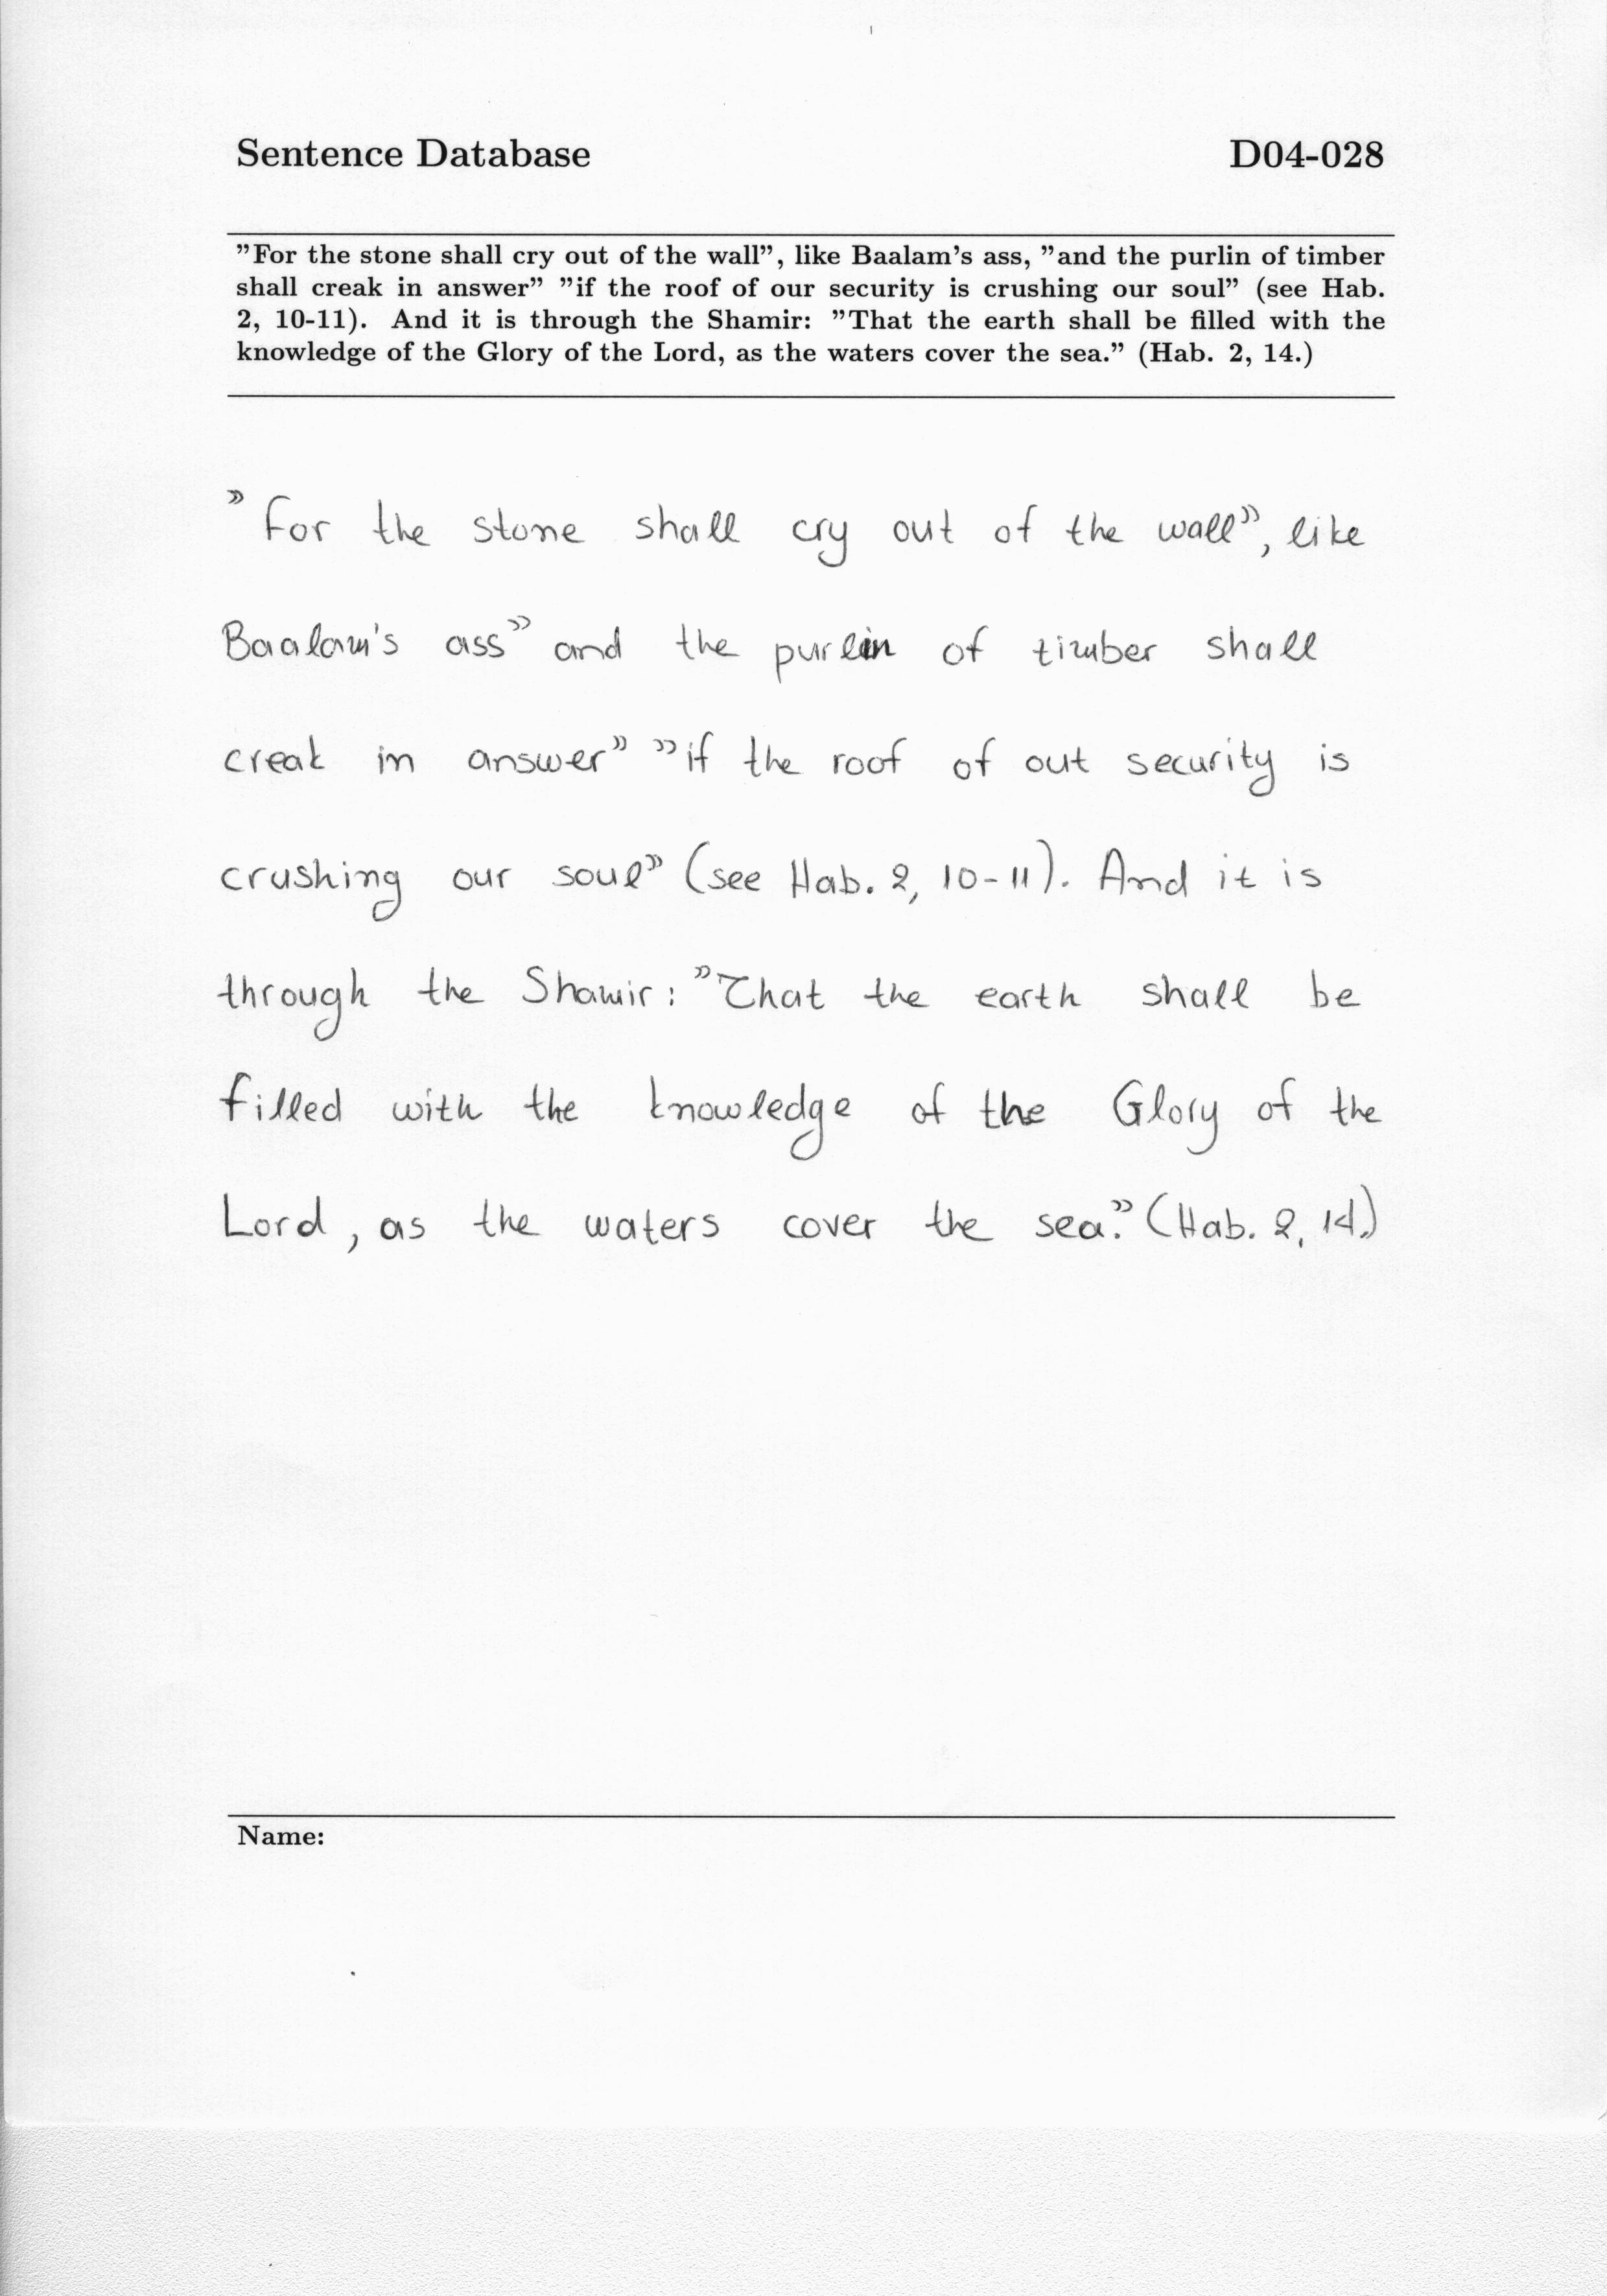 Sentence Database D04-028
"For the stone shall cry out of the wall", like Baalam's ass, "and the purlin of timber
shall creak in answer" "if the roof of our security is crushing our soul" (see Hab.
2, 10-11). And it is through the Shamir: "That the earth shall be filled with the
knowledge of the Glory of the Lord, as the waters cover the sea." (Hab. 2, 14.)
" For the stone shall cry out of the wall", like
Baalam's ass" and the purlin of timber shall
creak in answer" "if the roof of out security is
crushing our soul" (see Hab. 2, 10-11). And it is
through the Shamir: "That the earth shall be
filled with the knowledge of the Glory of the
Lord, as the waters cover the sea." (Hab. 2, 14.)
Name: